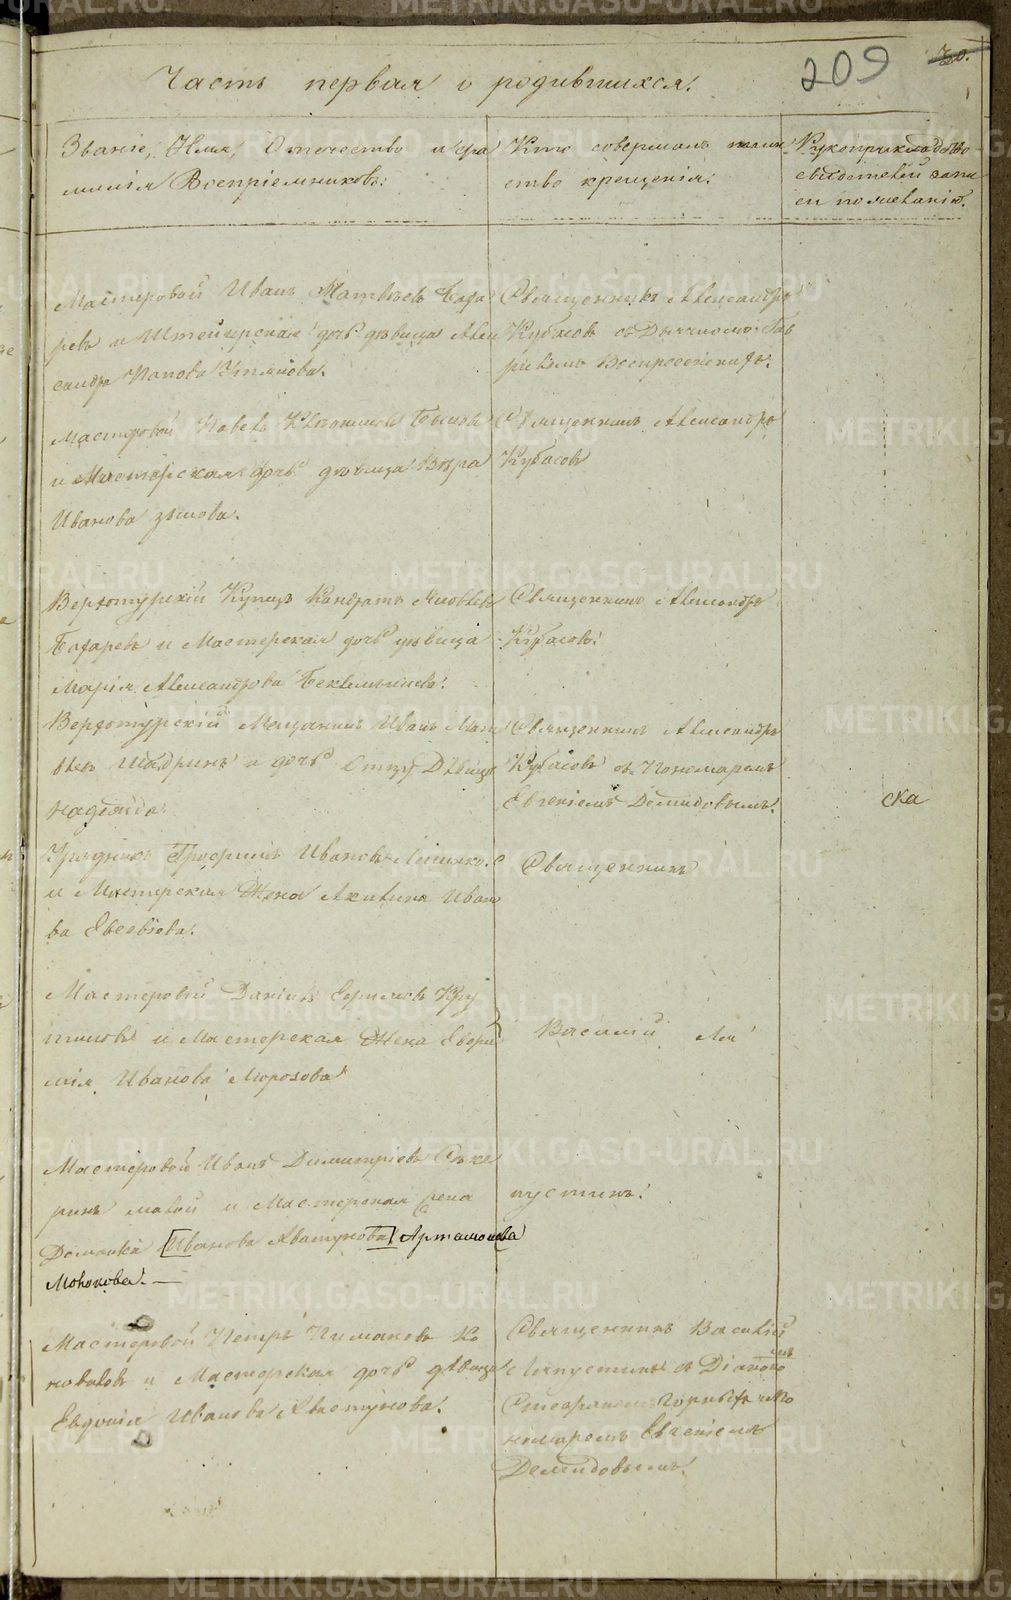 209
Часть первая о родившихся.
Званіе, Имя, Отечество и фа
милія Воспріемниковъ.
Кто совершалъ таин
ство крещенія.
Рукоприкладство
свидѣтелей запи
си по желанію.
Мастеровой Иванъ Матвѣевъ Бажа
ревъ и дочь дѣвица Алек
сандра Попова
Священникъ Александръ
Кубасовъ съ Дьячкомъ Гав
Воскресенскимъ.
Мастеровой Павелъ Бѣловъ
и Мастерская дочь дѣвица Вѣра
Иванова
Священникъ Александръ
Кубасовъ
Верхотурскій Купецъ Кондратъ Яковлевъ
и Мастерская дочь дѣвица
Марія Александрова
Священникъ Александръ
Кубасовъ.
Верхотурскій Мещанинъ Иванъ Мат
вѣевъ Шадринъ и дочь Дѣвица
Надежда.
Священникъ Александръ
Кубасовъ съ Пономаремъ
Евгеніемъ Демидовымъ.
ска
Урядникъ Трофимъ Ивановъ
и Мастерская Жена Акилина Ивано
ва Евсевіева.
Священникъ
Мастеровой Даніилъ Кру
и Мастерская Жена Евфи
мія Иванова Морозова
Василій Ля
Мастеровой Иванъ Димитріевъ
и Мастерская жена
Домника [Иванова Хвастунова] Артамонова
Мохокова. —
пустинъ.
Мастеровой Петръ Пимановъ Ко
новаловъ и Мастерская дочь дѣвица
Евдокія Иванова Хвастунова.
Священникъ Василій
Ляпустинъ съ Діакономъ
Стефаномъ и По
номаремъ Евгеніемъ
Демидовымъ.
METRIKI.GASO-URAL.RU